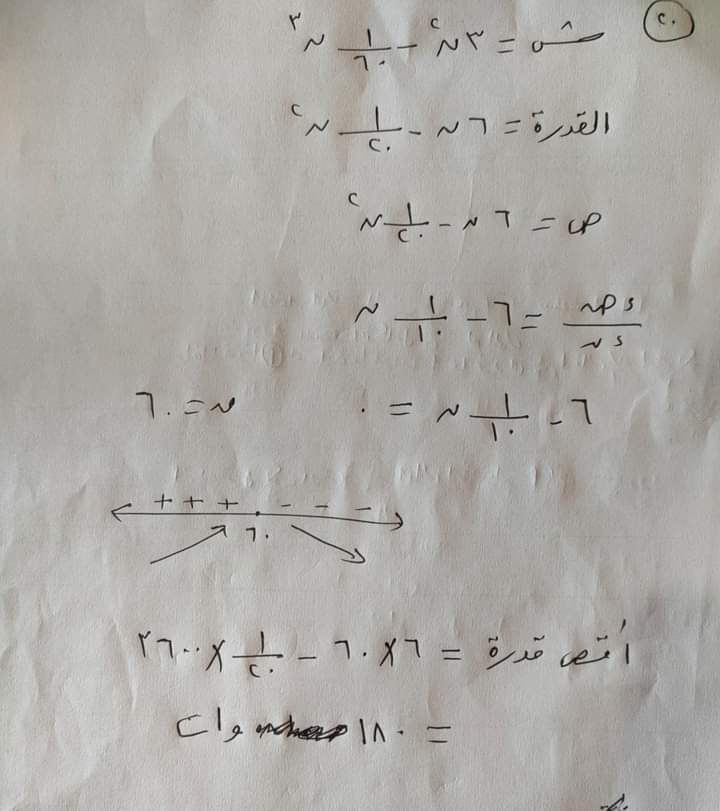 ٢٠
شـ = ٣ن٢ - ١/٦٠ ن٣
القدرة = ٦ن - ١/٢٠ ن٢
ص = ٦ن - ١/٢٠ ن٢
ءص/ءن = ٦ - ١/١٠ ن
٦ - ١/١٠ ن = ٠ ن = ٦٠
+ + + - - -
٦٠
أقصى قدرة = ٦×٦٠ - ١/٢٠ × ٣٦٠٠
= ١٨٠ وات